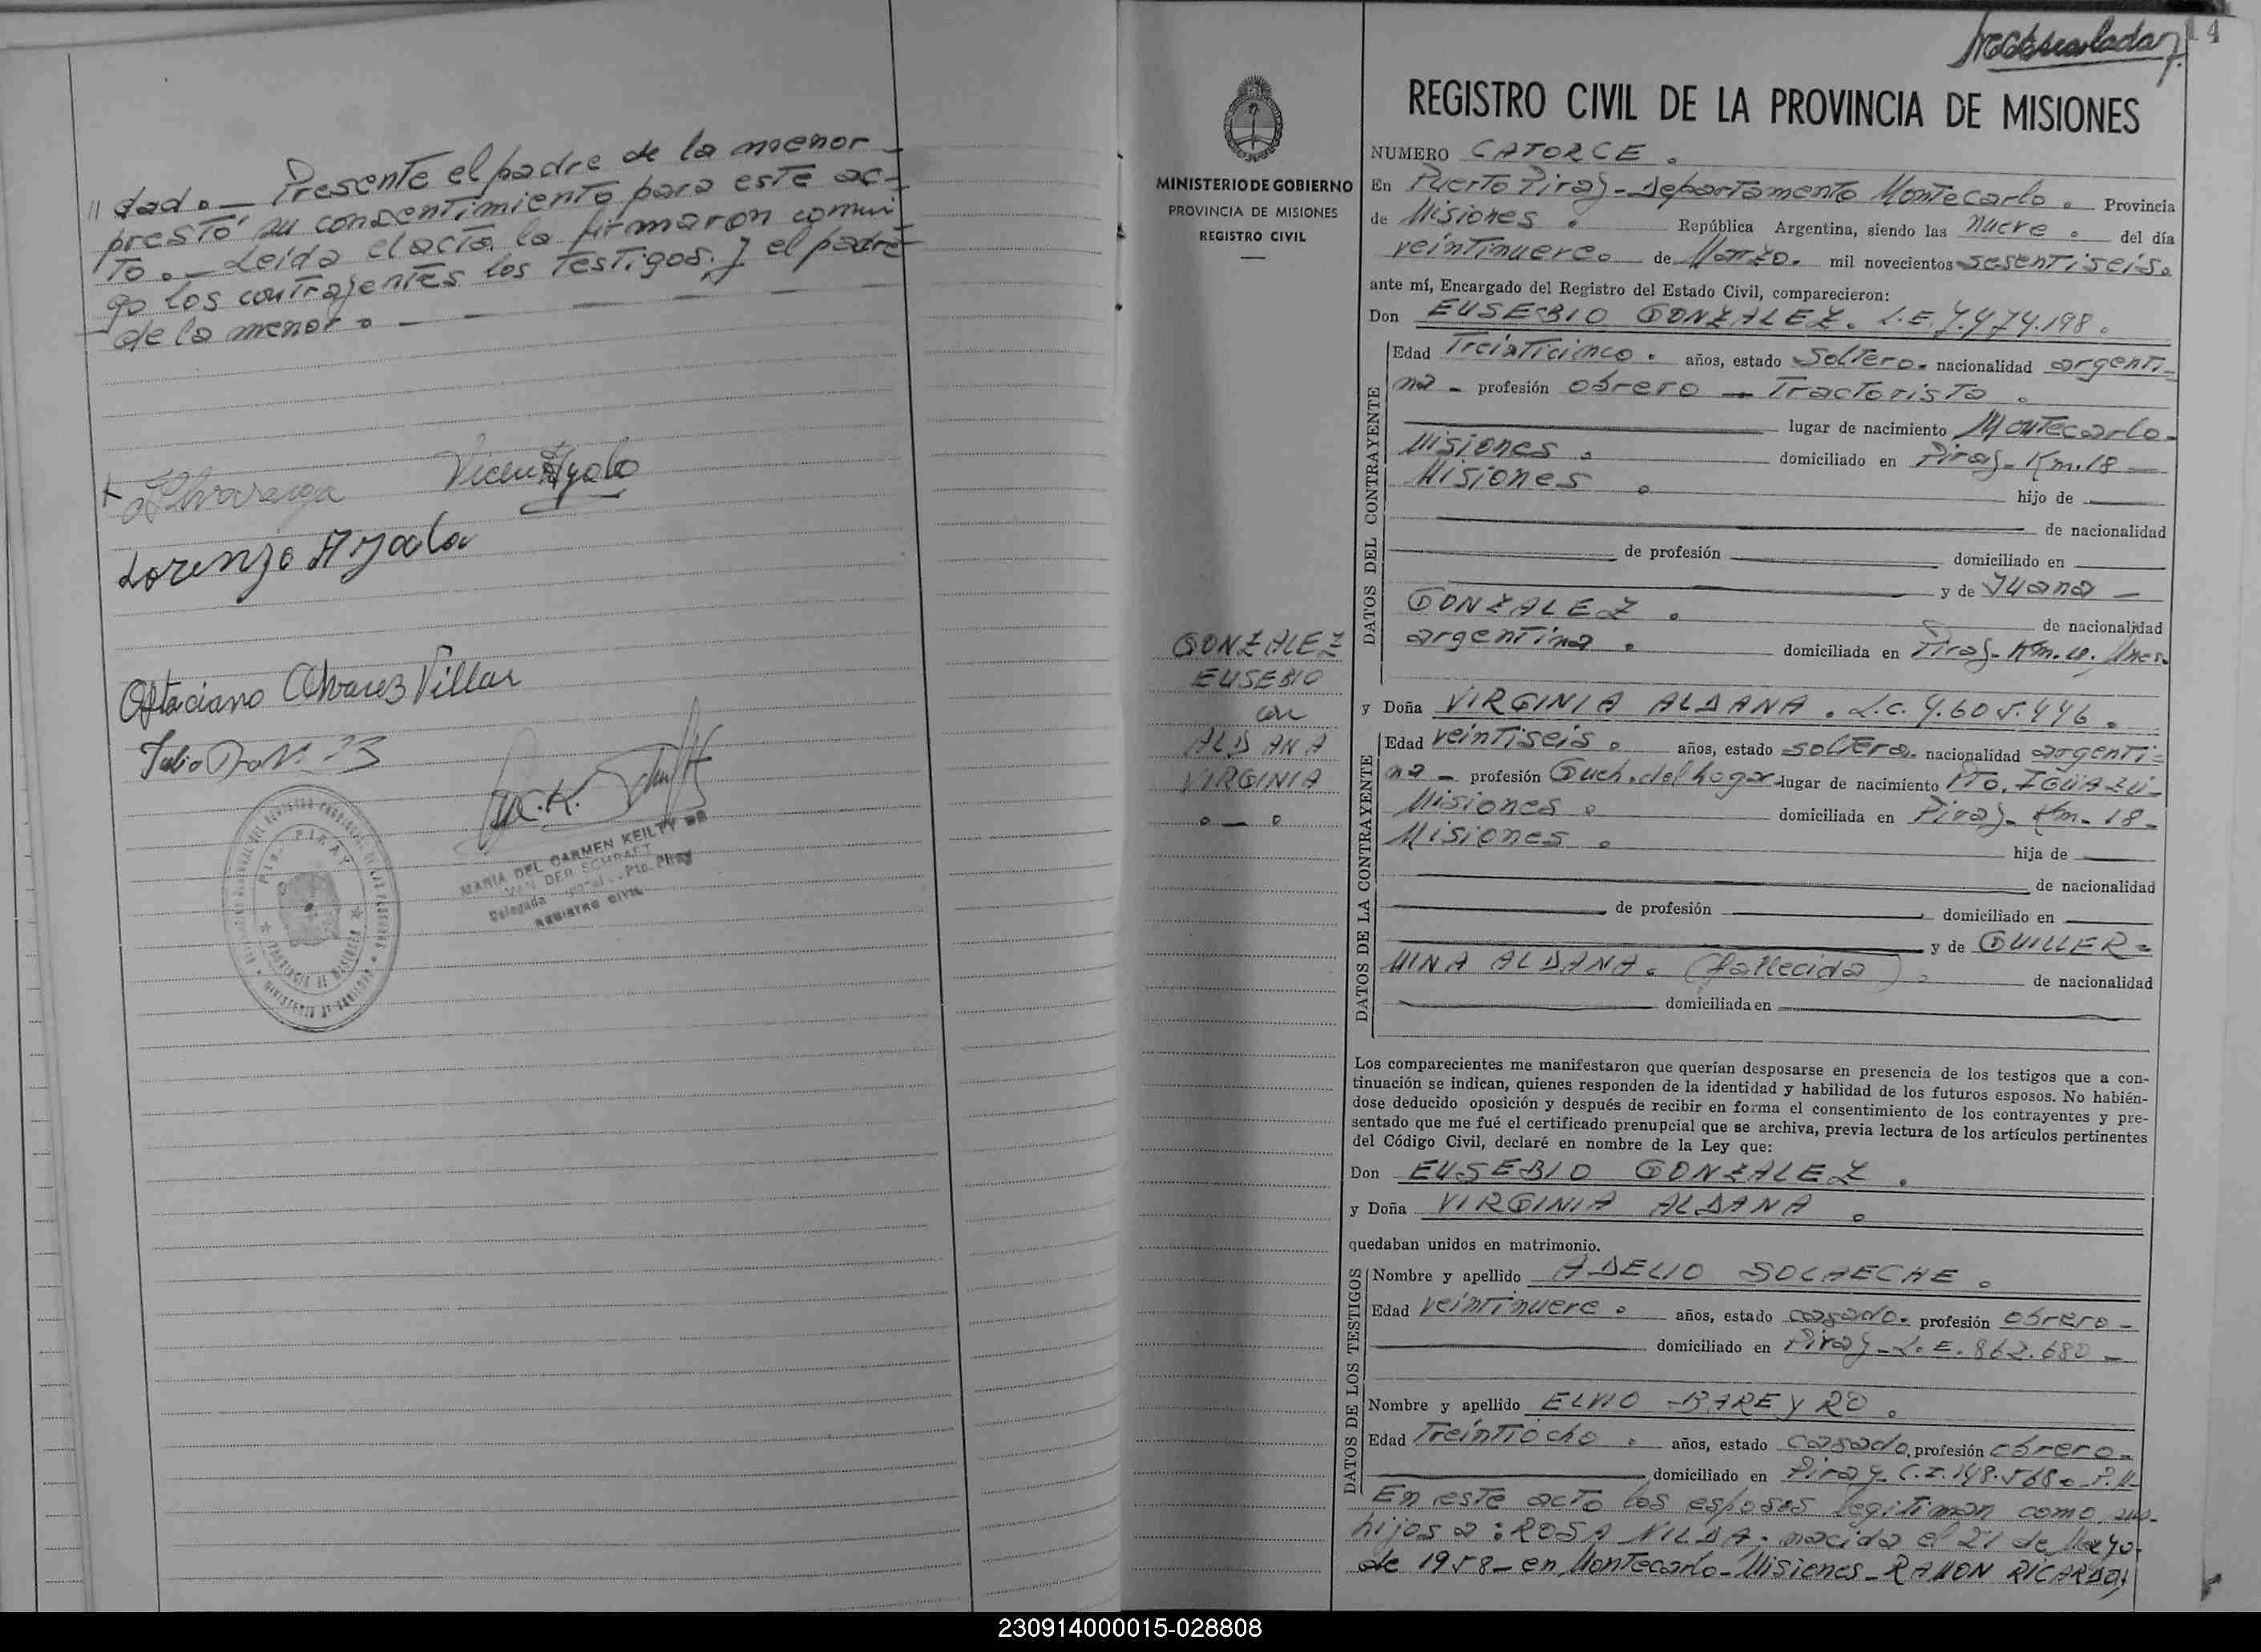 // dad. — Presente el padre de la menor —
prestó su consentimiento para este ac-
to. — Leida el acta, la firmaron conmi
go los contrayentes los testigos. y el padre
de la menor. —
Vicen Ayala
Lorenzo Ayala
Alvarez Villar
Julio
MARIA DEL CARMEN KEILTY DE
VAN DER SCHRAFT
Delegada Pto. Piray
REGISTRO CIVIL
Pto. PIRAY
14
MINISTERIO DE GOBIERNO
PROVINCIA DE MISIONES
REGISTRO CIVIL
GONZALEZ
EUSEBIO
con
ALDANA
VIRGINIA
REGISTRO CIVIL DE LA PROVINCIA DE MISIONES
NUMERO CATORCE.
En Puerto Piray - Departamento Montecarlo. Provincia
de Misiones. República Argentina, siendo las nueve. del día
veintinueve. de Marzo. mil novecientos sesentiseis.
ante mí, Encargado del Registro del Estado Civil, comparecieron:
Don EUSEBIO GONZALEZ. L.E. 7.474.198.
DATOS DEL CONTRAYENTE
Edad Treinticinco. años, estado Soltero. nacionalidad argenti-
na - profesión obrero — Tractorista.
lugar de nacimiento Montecarlo-
Misiones. domiciliado en Piray - Km. 18 —
Misiones. hijo de
de nacionalidad
de profesión domiciliado en
y de Juana —
GONZALEZ. de nacionalidad
argentina. domiciliada en Piray - Km.
y Doña VIRGINIA ALDANA. L.C. 4.605.446.
DATOS DE LA CONTRAYENTE
Edad veintiseis. años, estado soltera. nacionalidad argenti-
na - profesión Queh. del hogar lugar de nacimiento PTO. IGUAZÚ-
Misiones. domiciliada en Piray - Km - 18 -
Misiones. hija de
de nacionalidad
de profesión domiciliado en
y de GUILLER=
MINA ALDANA. (fallecida). de nacionalidad
domiciliada en
Los comparecientes me manifestaron que querían desposarse en presencia de los testigos que a con-
tinuación se indican, quienes responden de la identidad y habilidad de los futuros esposos. No habién-
dose deducido oposición y después de recibir en forma el consentimiento de los contrayentes y pre-
sentado que me fué el certificado prenupcial que se archiva, previa lectura de los artículos pertinentes
del Código Civil, declaré en nombre de la Ley que:
Don EUSEBIO GONZALEZ.
y Doña VIRGINIA ALDANA.
quedaban unidos en matrimonio.
DATOS DE LOS TESTIGOS
Nombre y apellido ADELIO SOCHECHE.
Edad veintinueve. años, estado casado. profesión obrero -
domiciliado en Piray - L.E. 862.680 -
Nombre y apellido ELVIO BAREYRO.
Edad Treintiocho. años, estado casado. profesión obrero -
domiciliado en Piray - C.I. 148.568.
En este acto los esposos legitiman como sus-
hijos a: ROSA NILDA; nacida el 21 de Mayo-
de 1958 - en Montecarlo - Misiones - RAMON RICARDO,
230914000015-028808